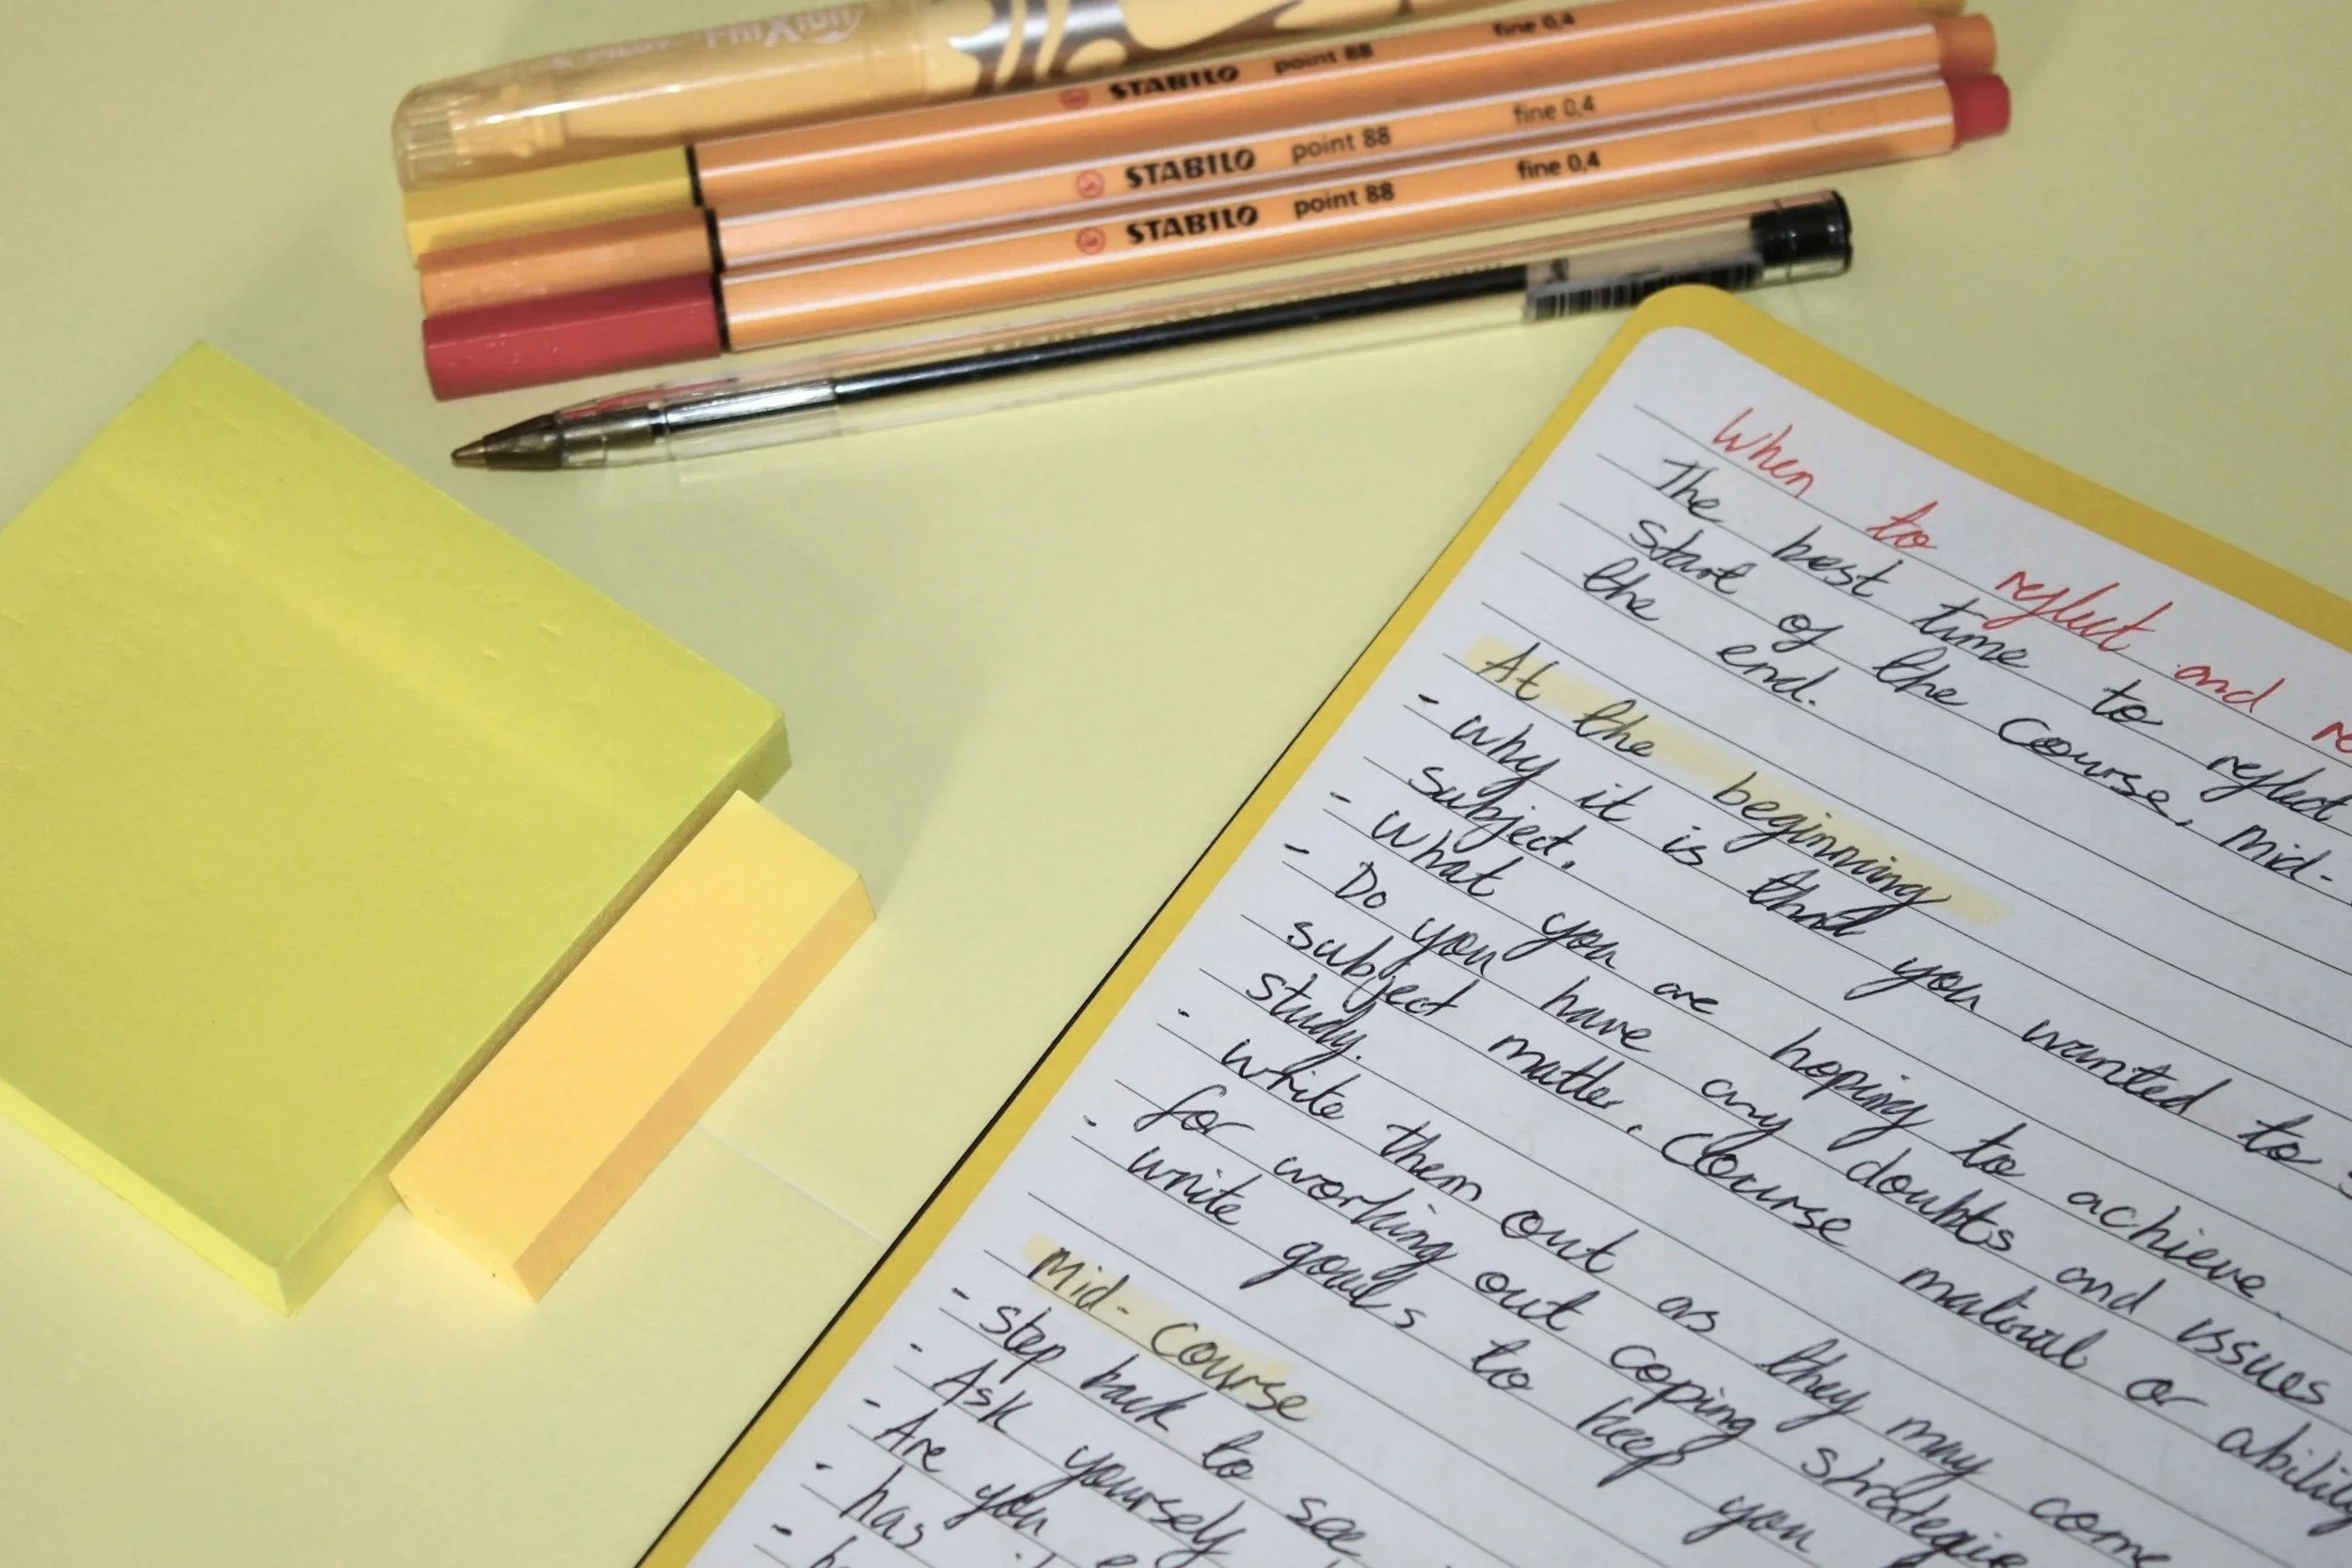 PILOT FriXion
STABILO point 88 fine 0,4
STABILO point 88 fine 0,4
STABILO point 88 fine 0,4
When to reflect and re
The best time to reflect
start of the course, mid-
the end.
At the beginning
- why it is that you wanted to s
subject.
- what you are hoping to achieve.
- Do you have any doubts and issues
subject matter. Course material or ability
study.
- write them out as they may come
for working out coping strategie
- write goals to keep you
Mid-Course
- step back to see
- Ask yourself
- Are you
- has